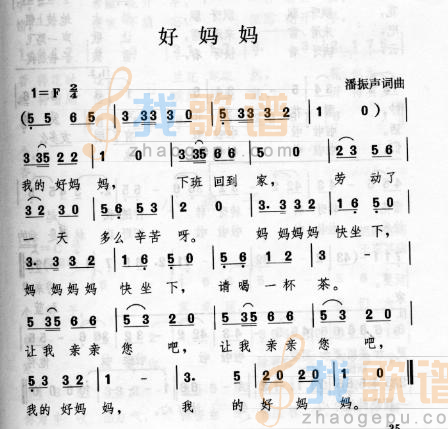 好 妈 妈
1=F 2/4
潘振声词曲
(5 5 6 5 | 3 33 3 0 | 5 33 3 2 | 1 0) |
3 35 2 2 | 1 0 | 3 35 6 6 | 5 0 | 2 3 5 5 |
我的 好妈 妈， 下班 回到 家， 劳 动了
3 2 3 0 | 5 6 5 3 | 2 0 | 3. 3 3 2 | 1 6 5 |
一 天 多么 辛苦 呀。 妈 妈妈妈 快坐 下，
3. 3 3 2 | 1 6 5 | 1 6 1 2 | 3 - |
妈 妈妈妈 快坐 下， 请喝 一杯 茶。
5 35 6 6 | 5 3 0 | 5 35 6 6 | 5 3 0 |
让我 亲亲 您 吧， 让我 亲亲 您 吧，
5 3 3 2 | 1 - | 3. 5 | 2 0 2 0 | 1 0 ‖
我的 好妈 妈， 我 的 好 妈 妈。
找歌谱
zhaogepu.com
找歌谱
zhaogepu.com